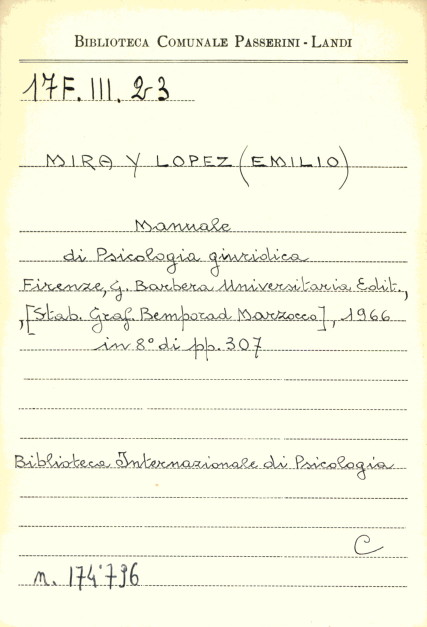 BIBLIOTECA COMUNALE PASSERINI - LANDI
17F. III. 23
MIRA Y LOPEZ (EMILIO)
Manuale
di Psicologia giuridica
Firenze, G. Barbera Universitaria Edit.,
,[Stab. Graf. Bemporad Marzocco], 1966
in 8° di pp. 307
Biblioteca Internazionale di Psicologia
C
n. 174'796